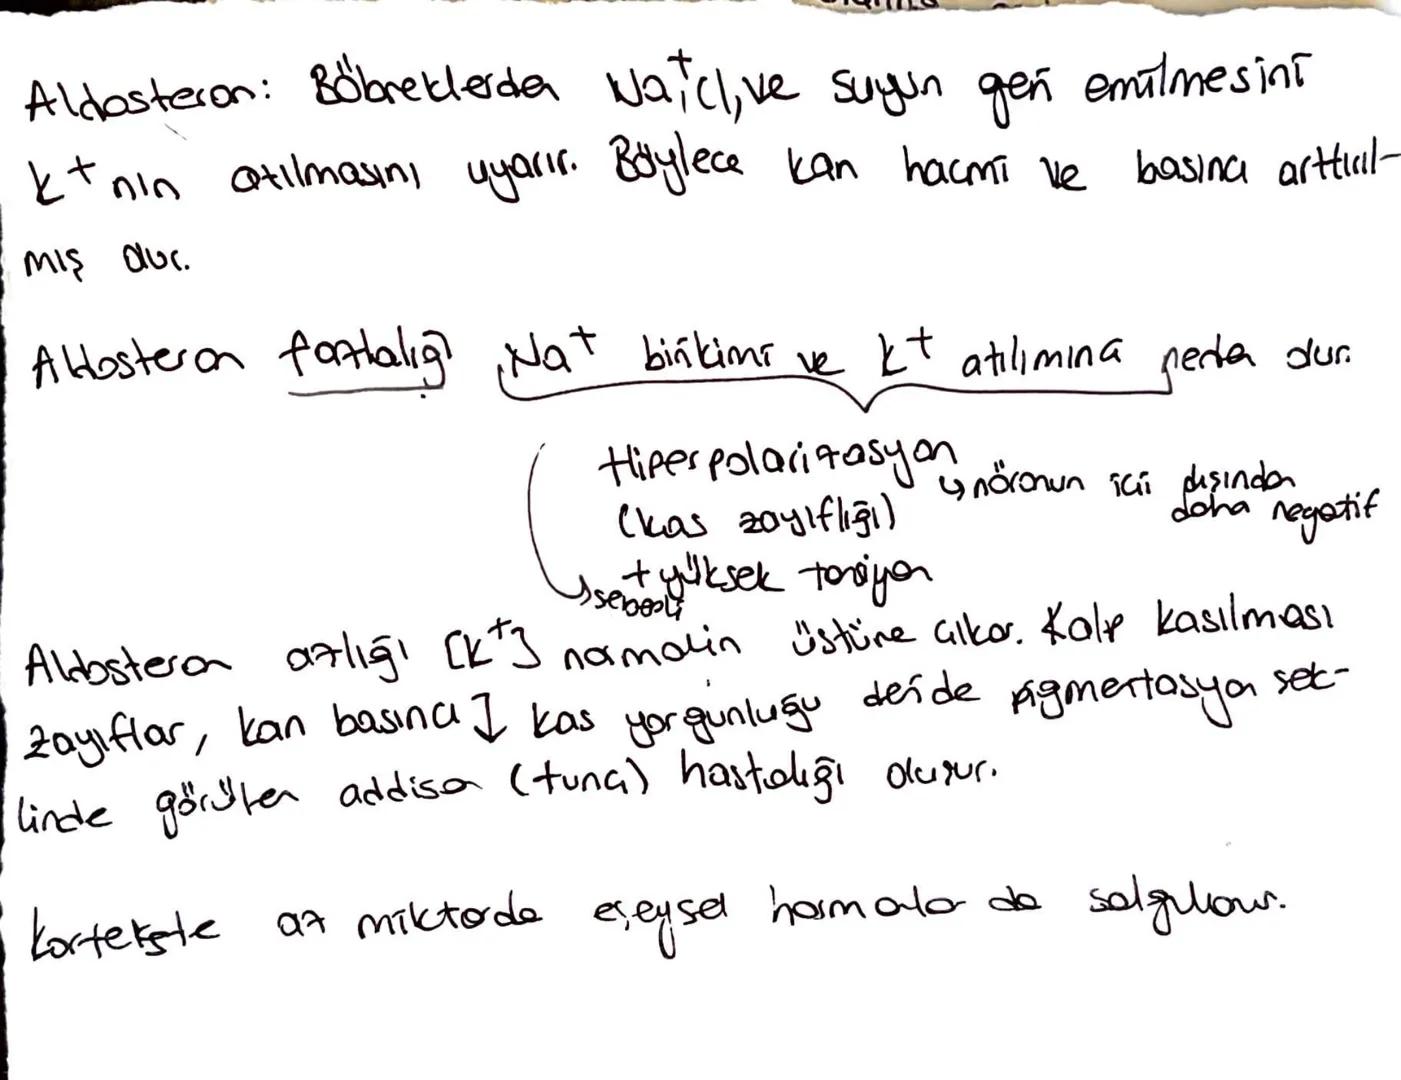 Aldosteron: Böbreklerden Na⁺, Cl, ve suyun geri emilmesini
K⁺ nın atılmasını uyarır. Böylece kan hacmi ve basıncı arttırıl-
mış olur.
Aldosteron fazlalığı Na⁺ birikimi ve K⁺ atılımına neden olur.
Hiperpolarizasyon
↳ nöronun içi dışından
daha negatif
(kas zayıflığı)
+ yüksek tansiyon
↳ sebebi
Aldosteron azlığı [K⁺] normalin üstüne çıkar. Kalp kasılması
zayıflar, kan basıncı ↓ kas yorgunluğu deride pigmentasyon şek-
linde görülen addison (tunç) hastalığı oluşur.
Kortekste az miktarda eşeysel hormonlar da salgılanır.